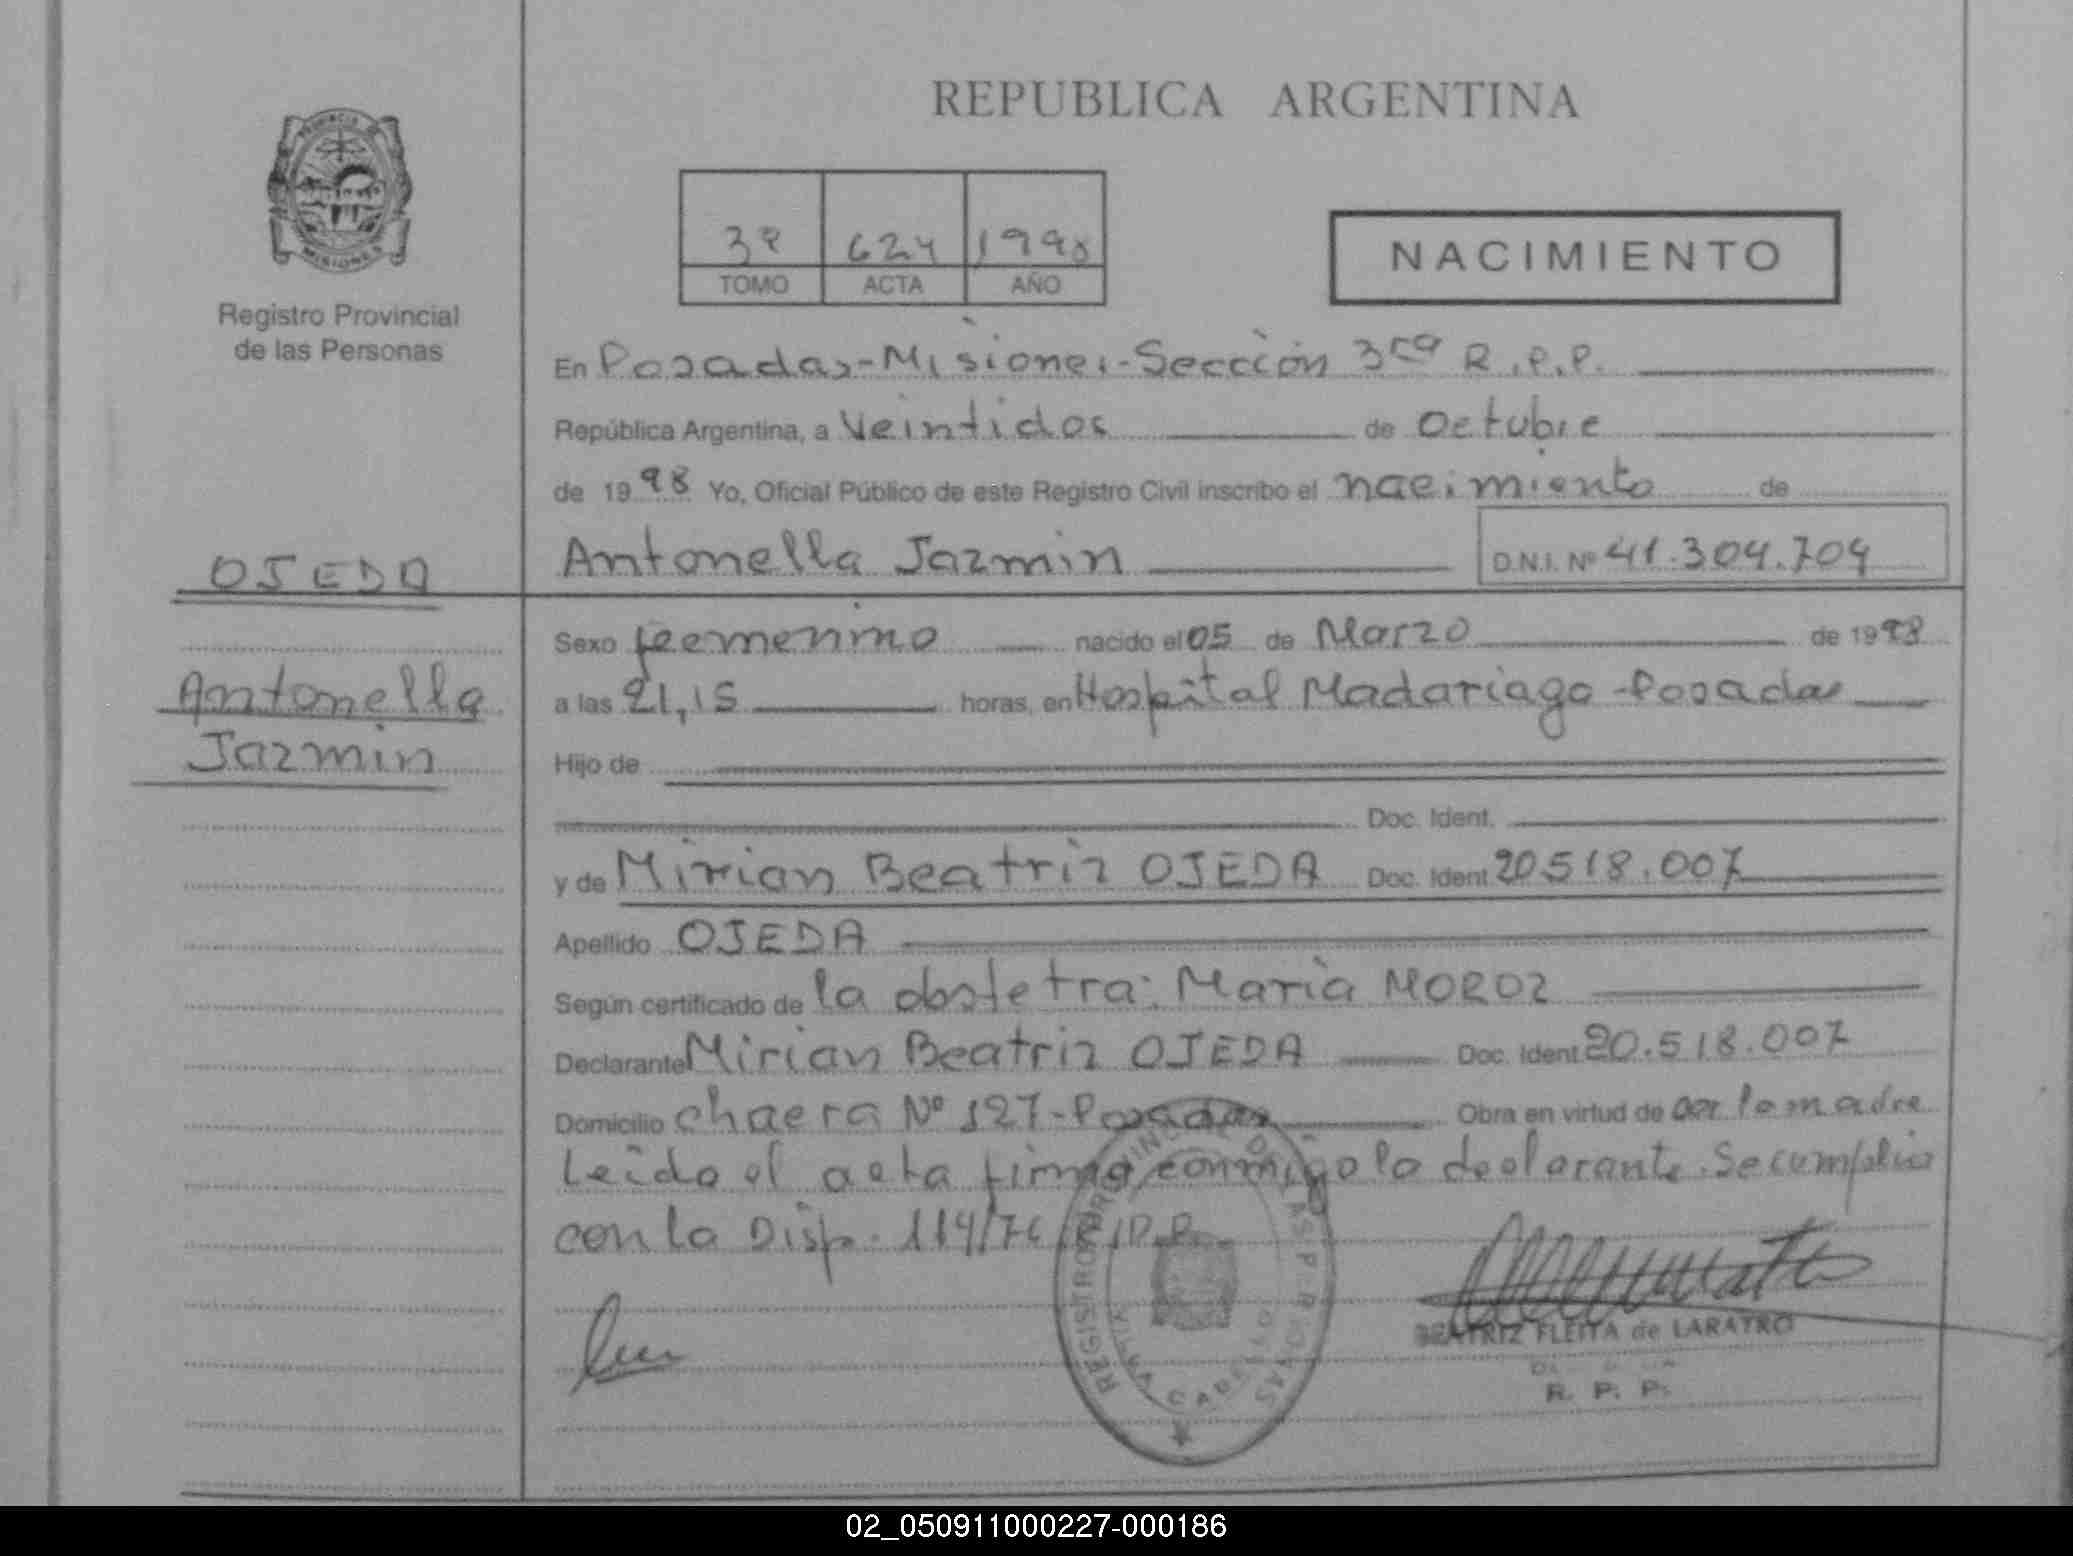 REPUBLICA ARGENTINA
PROVINCIA DE
MISIONES
Registro Provincial
de las Personas
3º 624 1998
TOMO ACTA AÑO
NACIMIENTO
En Posadas-Misiones-Sección 3ra R.P.P.
República Argentina, a Veintidos de Octubre
de 1998 Yo, Oficial Público de este Registro Civil inscribo el nacimiento de
OJEDA
Antonella Jazmin D.N.I. Nº 41.304.704
Sexo femenino nacido el 05 de Marzo de 1998
Antonella
Jazmin
a las 21,15 horas, en Hospital Madariaga-Posadas
Hijo de
Doc. Ident.
y de Mirian Beatriz OJEDA Doc. Ident 20.518.007
Apellido OJEDA
Según certificado de la obstetra: Maria MOROZ
Declarante Mirian Beatriz OJEDA Doc. Ident 20.518.007
Domicilio chacra Nº 127-Posadas Obra en virtud de ser la madre
Leida el acta firma conmigo la declarante. Se cumplio
con la Disp. 114/76 R.P.P.
REGISTRO PROVINCIAL DE LAS PERSONAS
BEATRIZ FLEITA de LARATRO
R. P. P.
02_050911000227-000186